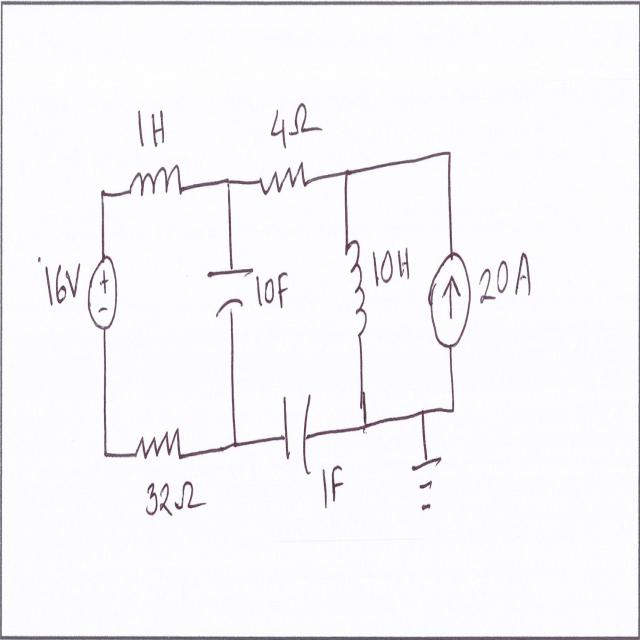 1H
4Ω
16V
+
-
10F
10H
20A
32Ω
1F